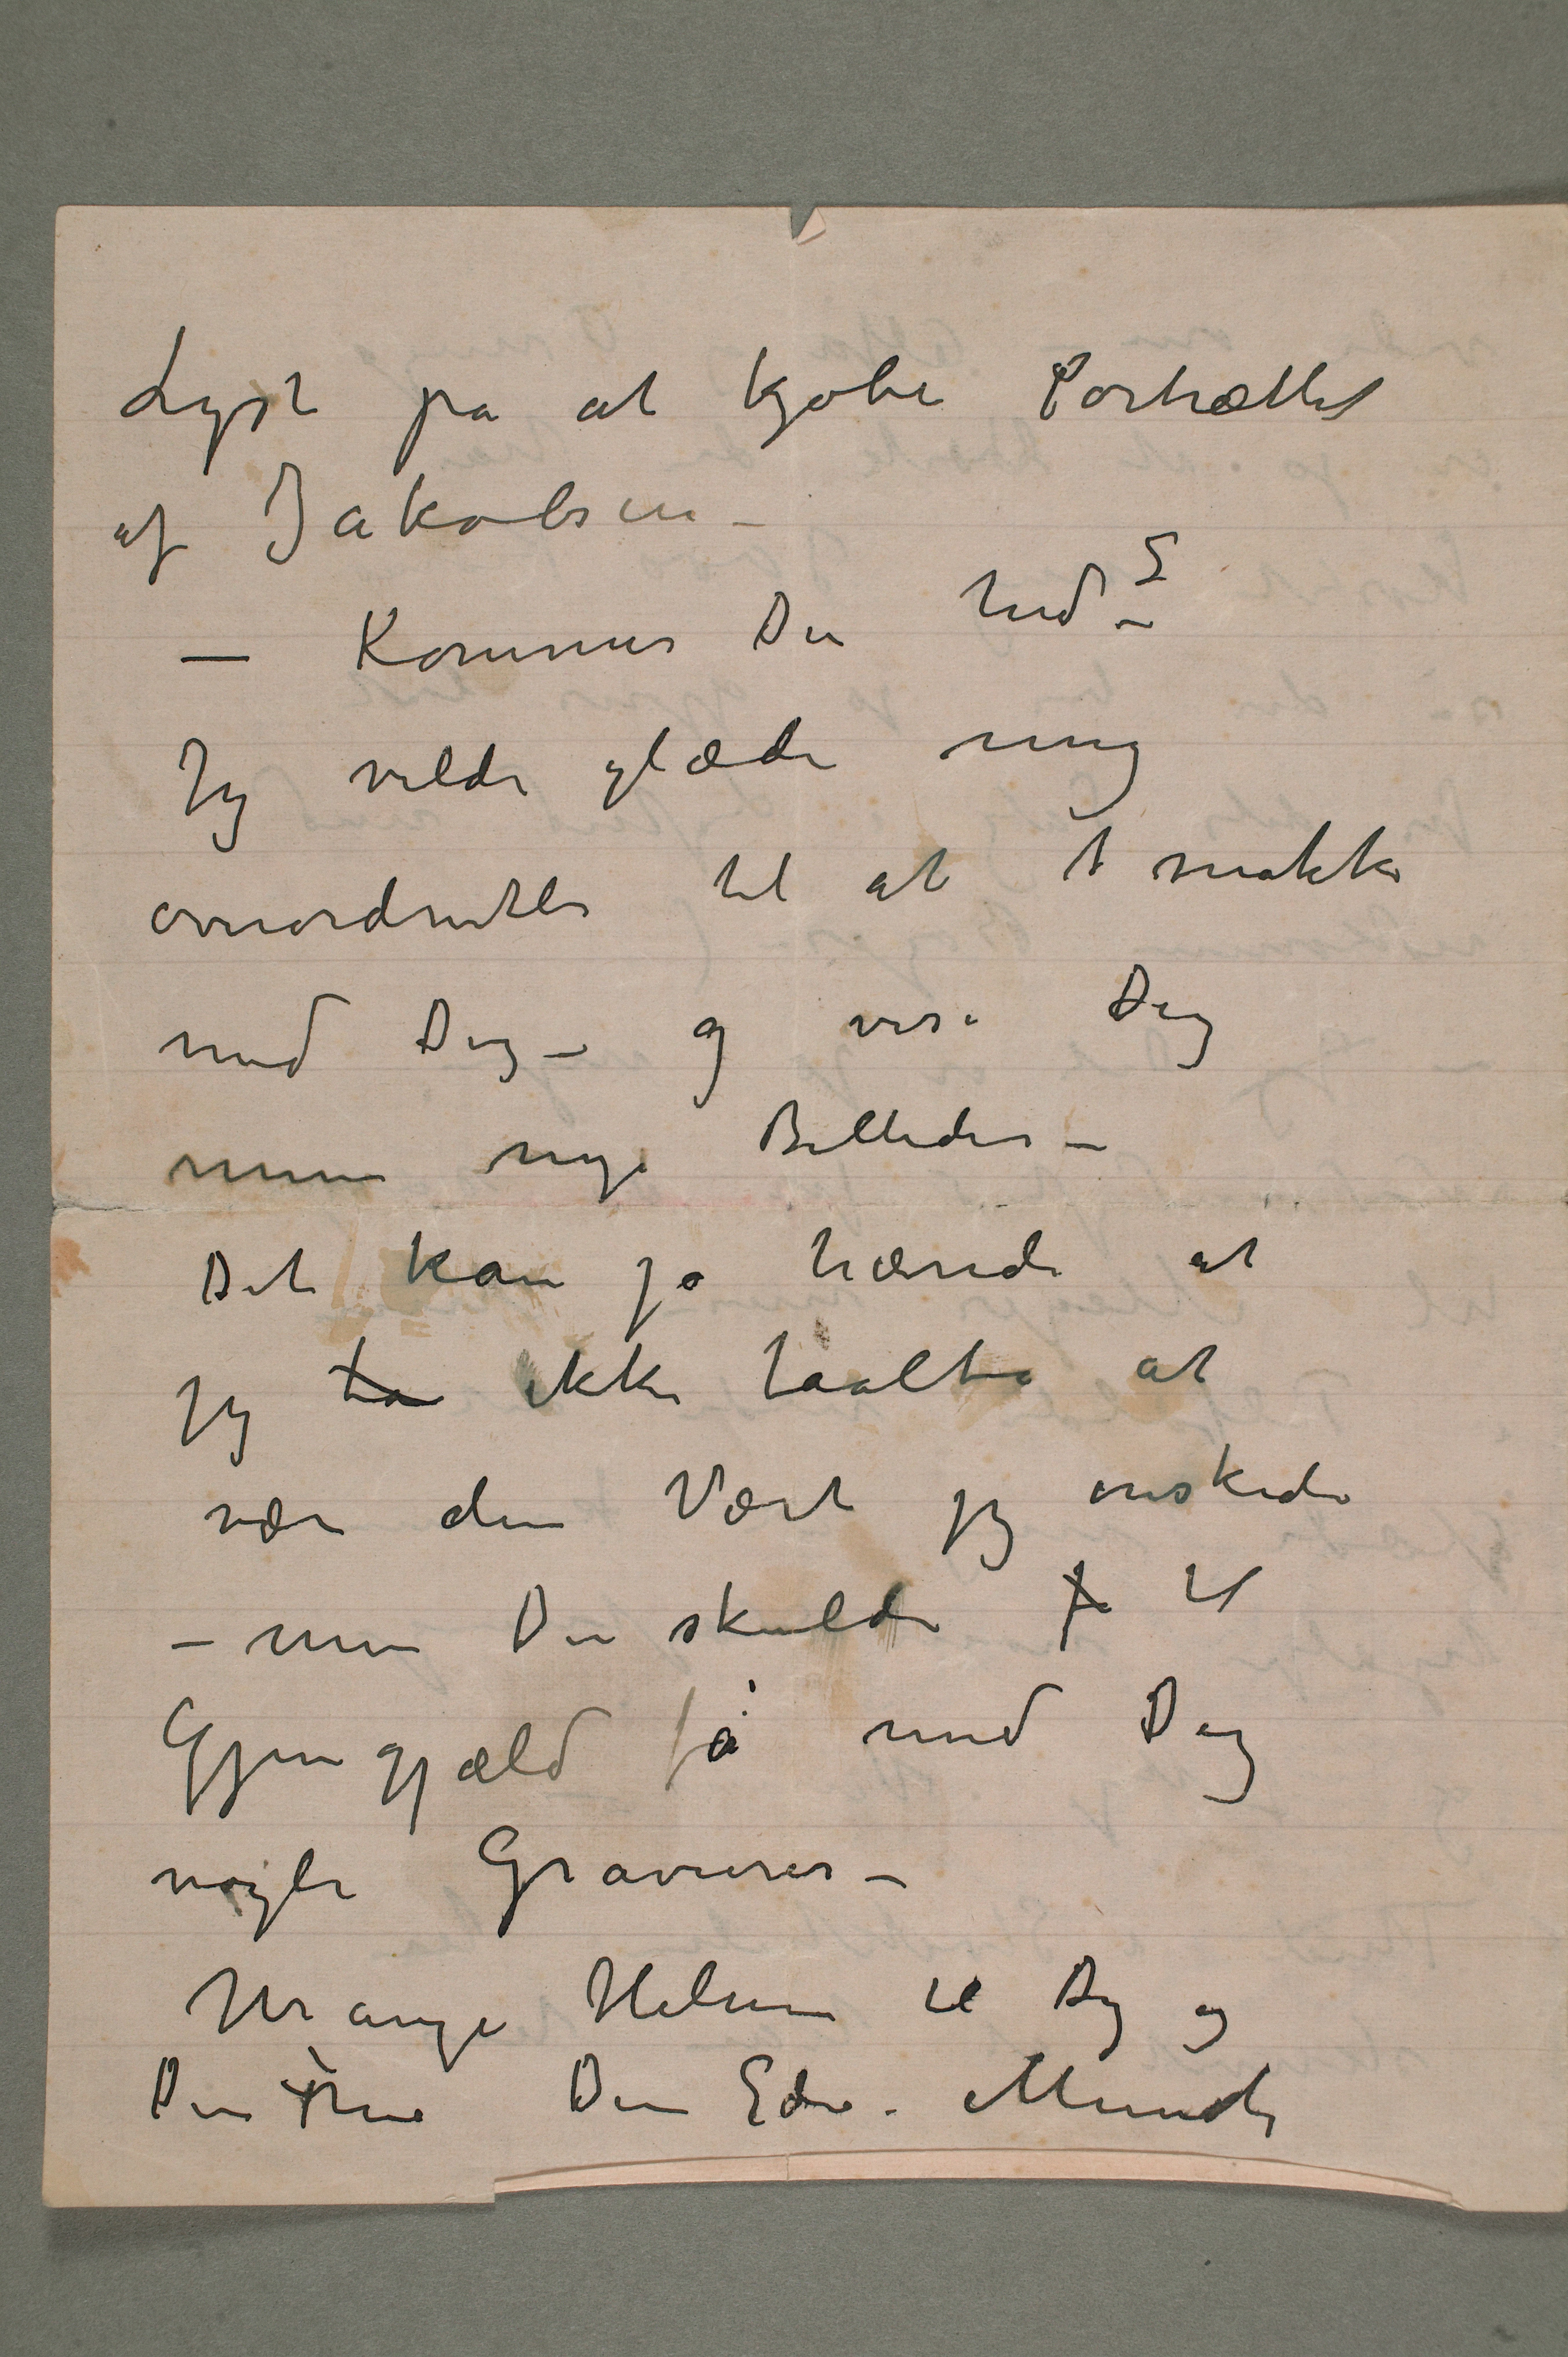 Lyst på at kjøbe Portrættet
af Jakobsen –
– Kommer Du hid? –
Jeg vilde glæde mig
overordentlig til at snakke
med Dig – og vise Dig
mine nye Billeder –
Det kan jo hænde at
jeg ta ikke taalte at
være den Vært jeg ønskede
– men Du skulde få til
Gjengjæld få med Dig
nogle Gravurer –
Mange Hilsner til Dig og
Din Frue Din Edv. Munch